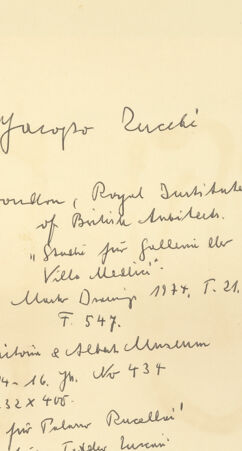 Jacopo Zucchi
London, Royal Institute
of British Architects.
"Studie für Galleria der
Villa Medici".
Master Drawings 1974, T. 21.
F. 547.
Victoria & Albert Museum
14-16. Jh. No 434
232 x 400.
für Palazzo Rucellai"